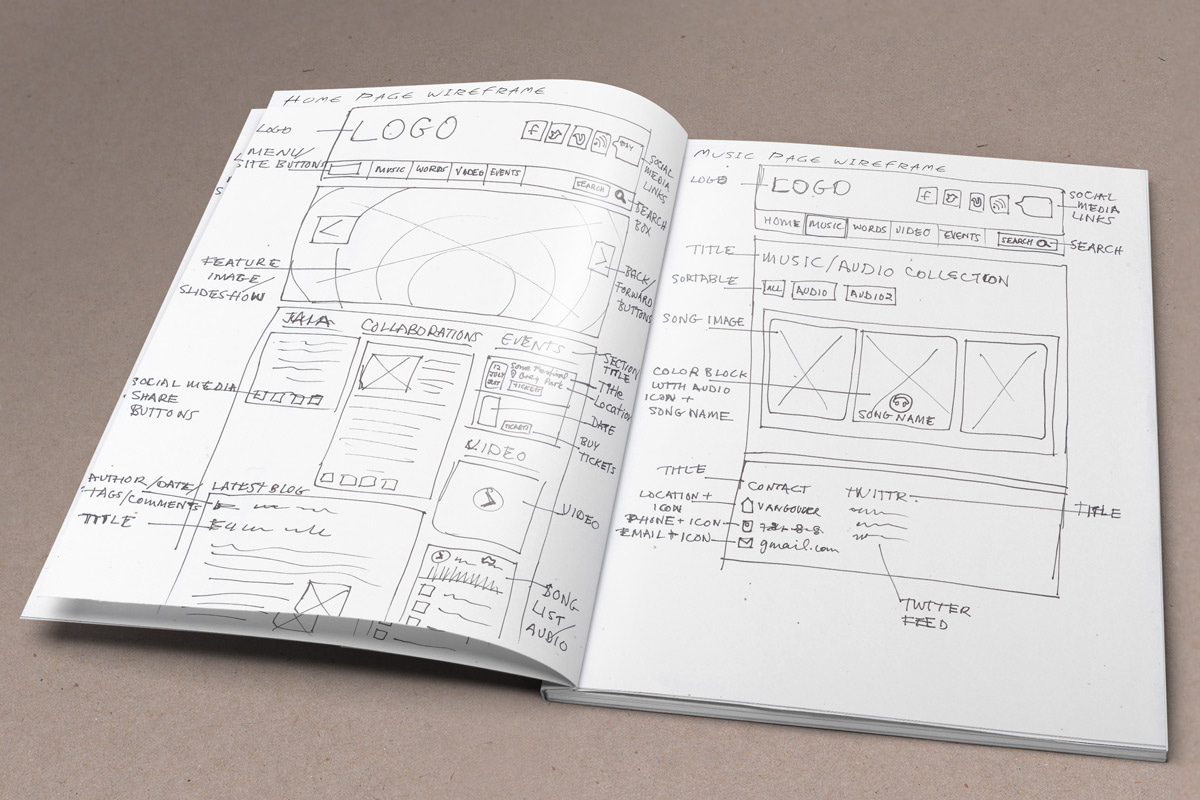 HOME PAGE WIREFRAME
LOGO
LOGO
MENU/
SITE BUTTONS
MUSIC WORDS VIDEO EVENTS
SEARCH
SOCIAL
MEDIA
LINKS
SEARCH
BOX
FEATURE
IMAGE/
SLIDESHOW
BACK/
FORWARD
BUTTONS
JAIA
COLLABORATIONS
EVENTS
SECTION
TITLE
12
JULY
Some Festival
@ Every Park
TICKETS
Title
Location
DATE
TICKETS
BUY
TICKETS
SOCIAL MEDIA
SHARE
BUTTONS
VIDEO
VIDEO
AUTHOR/DATE/
TAGS/COMMENTS
TITLE
LATEST BLOG
SONG
LIST/
AUDIO
MUSIC PAGE WIREFRAME
LOGO
LOGO
SOCIAL
MEDIA
LINKS
HOME MUSIC WORDS VIDEO EVENTS SEARCH
SEARCH
TITLE
MUSIC/AUDIO COLLECTION
SORTABLE
ALL AUDIO AUDIO2
SONG IMAGE
COLOR BLOCK
WITH AUDIO
ICON +
SONG NAME
SONG NAME
TITLE
CONTACT
TWITTR
TITLE
LOCATION +
ICON
VANCOUVER
PHONE + ICON
EMAIL + ICON
gmail.com
TWITTER
FEED